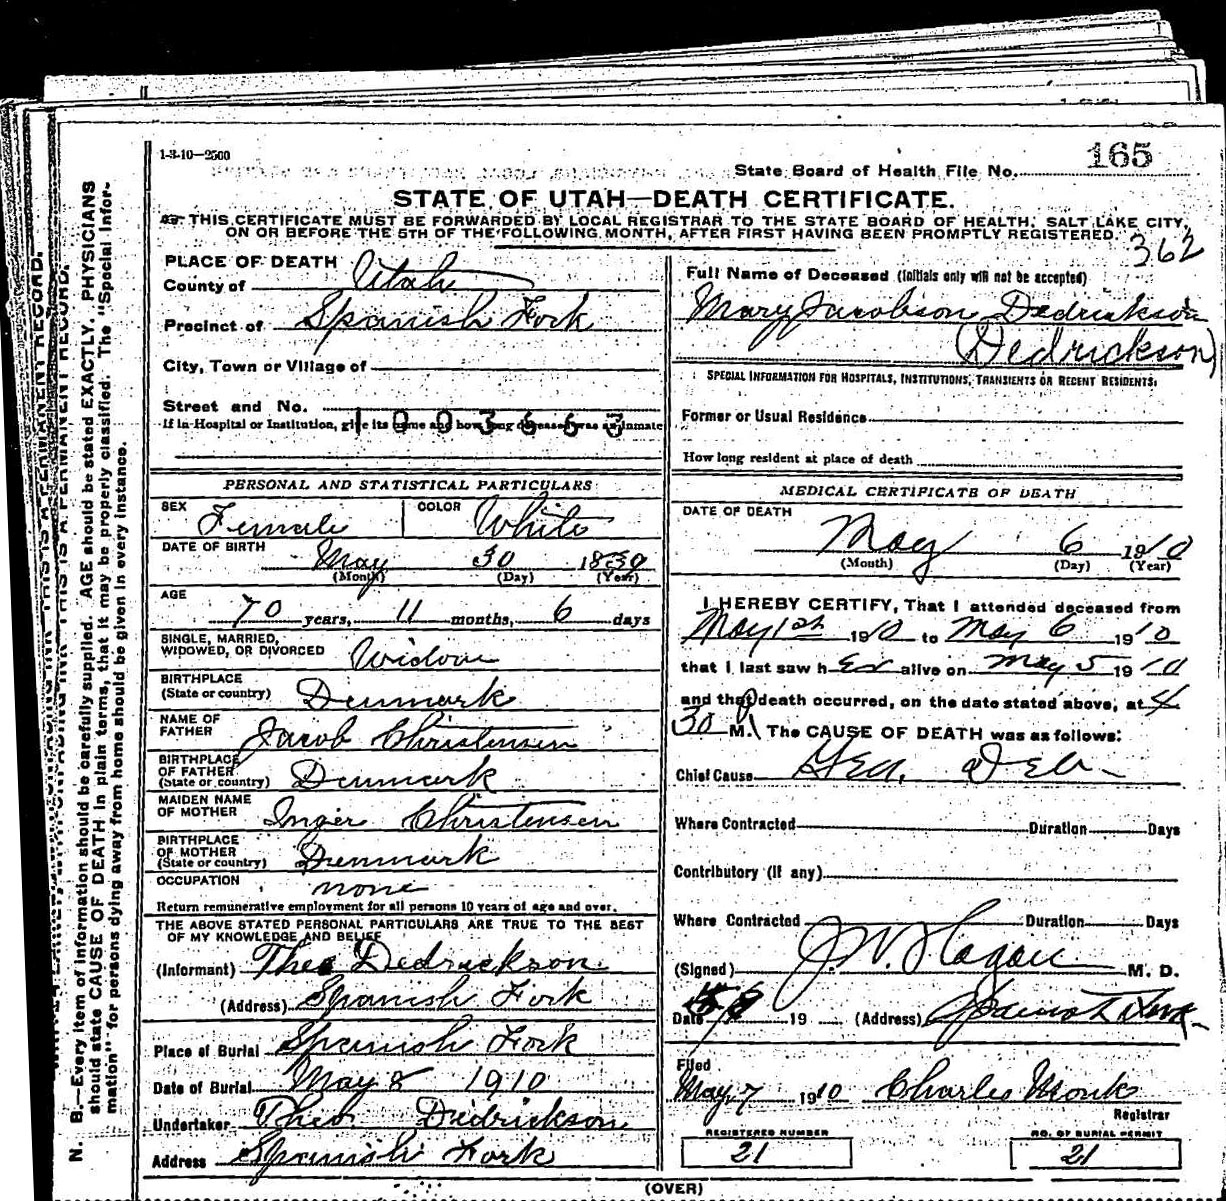 1-3-10—2500
State Board of Health File No. 165
STATE OF UTAH—DEATH CERTIFICATE.
THIS CERTIFICATE MUST BE FORWARDED BY LOCAL REGISTRAR TO THE STATE BOARD OF HEALTH, SALT LAKE CITY,
ON OR BEFORE THE 5TH OF THE FOLLOWING MONTH, AFTER FIRST HAVING BEEN PROMPTLY REGISTERED.
362
PLACE OF DEATH
County of Utah
Precinct of Spanish Fork
City, Town or Village of
Street and No.
1003663
If in Hospital or Institution, give its name and how long deceased was an inmate
Full Name of Deceased (Initials only will not be accepted)
Mary Jacobson Dedrickson
(Dedrickson)
SPECIAL INFORMATION FOR HOSPITALS, INSTITUTIONS, TRANSIENTS OR RECENT RESIDENTS.
Former or Usual Residence
How long resident at place of death
PERSONAL AND STATISTICAL PARTICULARS
SEX Female COLOR White
DATE OF BIRTH May 30
(Month) (Day) (Year)
AGE
70 years, 11 months, 6 days
SINGLE, MARRIED,
WIDOWED, OR DIVORCED Widow
BIRTHPLACE
(State or country) Denmark
NAME OF
FATHER Jacob Christensen
BIRTHPLACE
OF FATHER
(State or country) Denmark
MAIDEN NAME
OF MOTHER Inger Christensen
BIRTHPLACE
OF MOTHER
(State or country) Denmark
OCCUPATION none
Return remunerative employment for all persons 10 years of age and over.
THE ABOVE STATED PERSONAL PARTICULARS ARE TRUE TO THE BEST
OF MY KNOWLEDGE AND BELIEF
(Informant) Theo Dedrickson
(Address) Spanish Fork
Place of Burial Spanish Fork
Date of Burial May 8 1910
Undertaker Theo. Dedrickson
Address Spanish Fork
MEDICAL CERTIFICATE OF DEATH
DATE OF DEATH
May 6 1910
(Month) (Day) (Year)
I HEREBY CERTIFY, That I attended deceased from
May 1st 1910 to May 6 1910
that I last saw her alive on May 5 1910
and that death occurred, on the date stated above, at 4
30 M. The CAUSE OF DEATH was as follows:
Chief Cause Gen. Deb
Where Contracted Duration Days
Contributory (if any)
Where Contracted Duration Days
(Signed) J. W. Hagan M. D.
Date 19 (Address) Spanish Fork
Filed
May 7 1910 Charles Monk
Registrar
REGISTERED NUMBER
21
NO. OF BURIAL PERMIT
21
(OVER)
N. B.—Every item of information should be carefully supplied. AGE should be stated EXACTLY. PHYSICIANS
should state CAUSE OF DEATH in plain terms, that it may be properly classified. The "Special Infor-
mation" for persons dying away from home should be given in every instance.